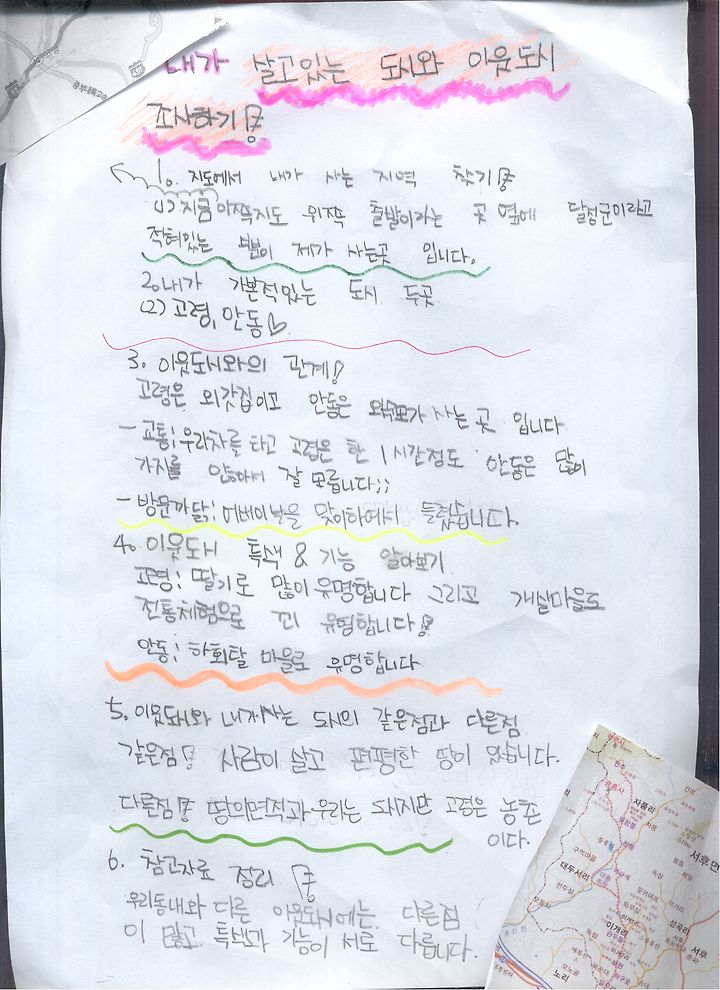 내가 살고있는 도시와 이웃도시
조사하기!
1. 지도에서 내가 사는 지역 찾기!
(1) 지금 이쪽지도 위쪽 출발이라는 곳 옆에 달성군이라고
적혀있는 부분이 제가 사는곳 입니다.
2. 내가 가본적있는 도시 두곳
(2) 고령, 안동♡
3. 이웃도시와의 관계!
고령은 외갓집이고 안동은 사는 곳 입니다
- 교통; 우리차를 타고 고령은 한 1시간정도 안동은 많이
가지를 안아서 잘 모릅니다;;
- 방문까닭; 어버이날을 맞이하여서 들렸습니다.
4. 이웃도시 특색 & 기능 알아보기
고령: 딸기로 많이 유명합니다 그리고 개실마을도
전통체험으로 꾀 유명합니다!
안동: 하회탈 마을로 유명합니다
5. 이웃도시와 내가사는 도시의 같은점과 다른점
같은점! 사람이 살고 편평한 땅이 있습니다.
다른점! 땅의면적과 우리는 도시지만 고령은 농촌
이다.
6. 참고자료 정리!
우리동내와 다른 이웃도시에는 다른점
이 많고 특색과 기능이 서로 다릅니다.
자품리
서후면
대두서리
성곡리
이개리
서후
노리